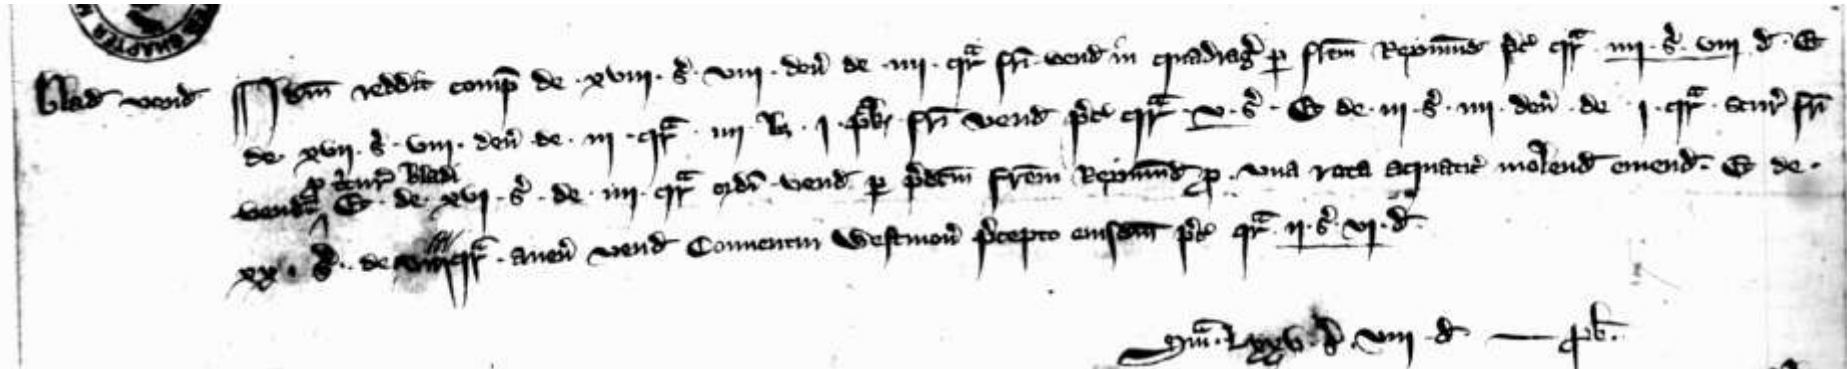 CHAPTER
Blad vend Idm reddit comp de · xviii · s · viii · den de · iiii · qr fri vend in quadrag p frem Reymund pc qr · iiii · s · viii · d · Et
de xvii · s · viii · den de · iii · qr · iiii · bz · i · pk fri vend pc qr · v · s · Et de · iii · s · iiii · den · de · i · qr · scur fri
p scur bladi
vendit Et · de · xvi · s · de · iiii · qr ordi vend p pdcm frem Reymund p · una rota aquatic molend emend · Et de ·
xx · s · de viii qr · aven vend Conventui Westmon pcepto eiusdm pc qr ii · s · vi · d ·
Sm · lxxv · s · viii · d — pb ·